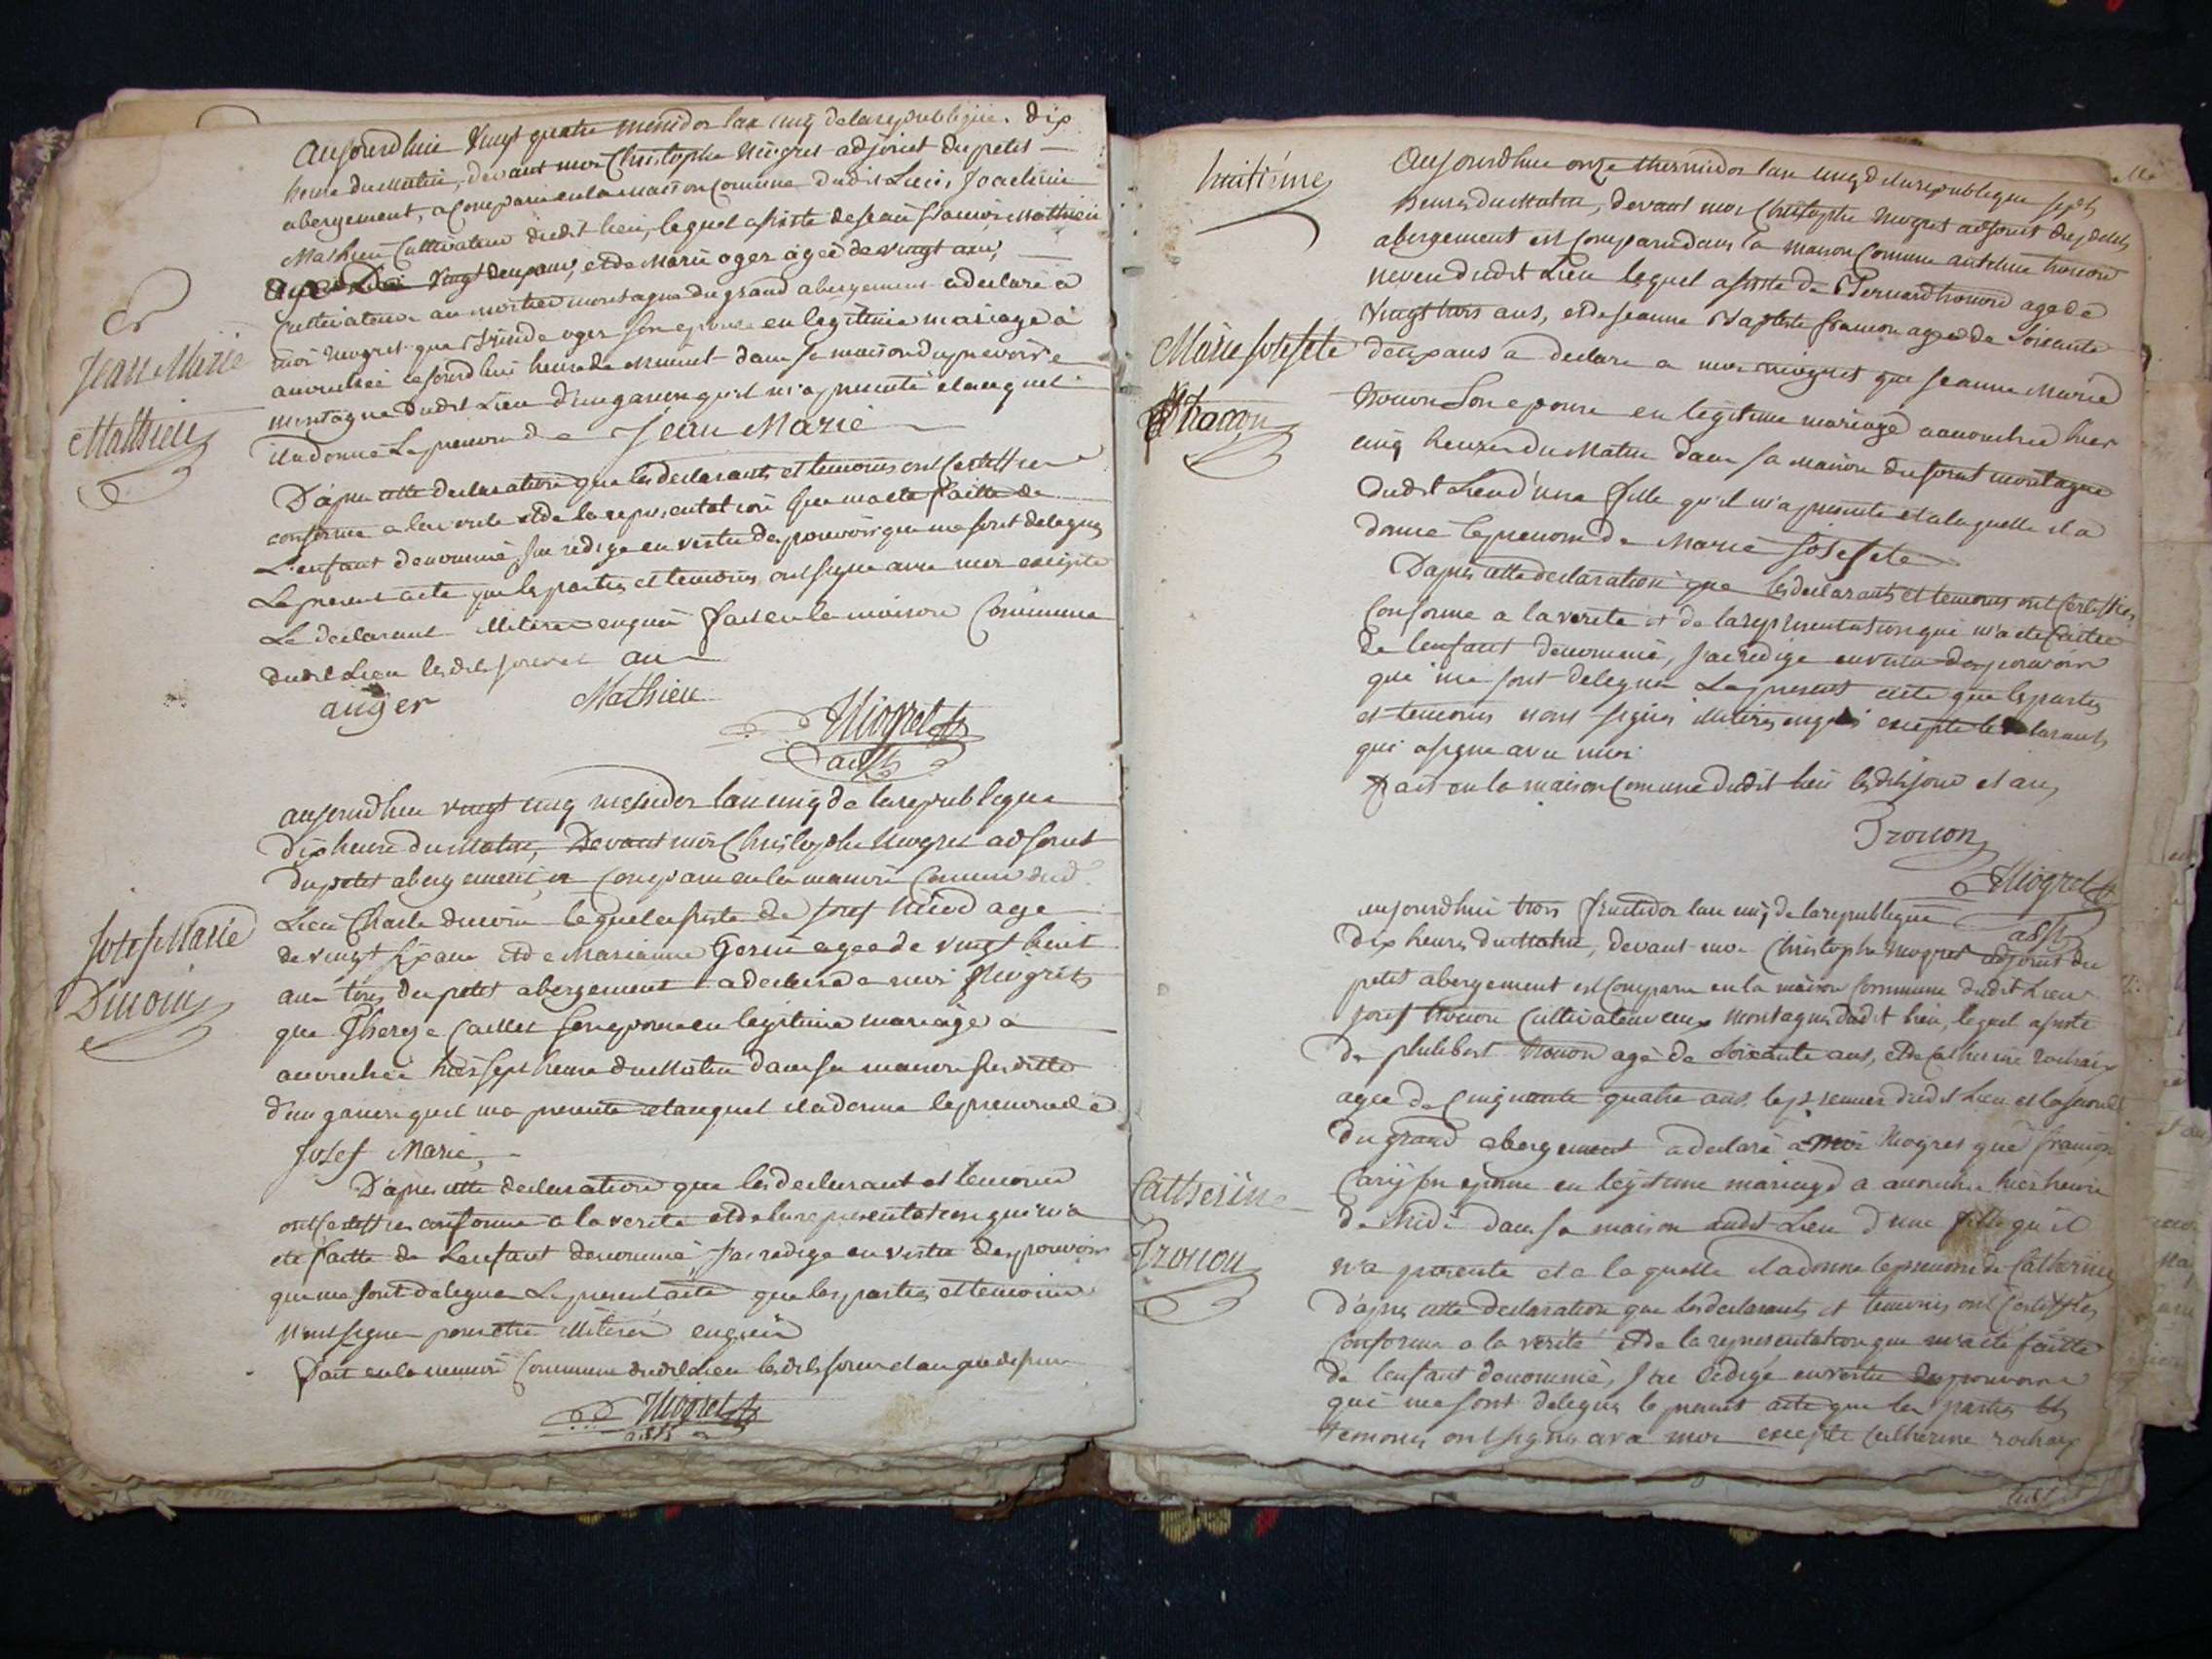 Jean Marie
Mathieu
aujourdhui vingt quatre messidor lan cinq de la republique dix
heure du matin, devant moi Christophe Niogret adjoint du petit
abergement, a comparu en la maison comune dudit Lieu, Joachim
Mathieu Cultivateur dudit lieu, lequel assisté de jean francois Mathieu
vingt deux ans, et de Marie oger agée de vingt ans,
Cultivateur au montagne du grand abergement a declaré a
moi niogret que oger son epouse en legitime mariage a
accouchée ce jourdhui heure de minuit dans sa maison
montagne dudit Lieu d'un garcon qu'il m'a presenté et auquel
il a donné Le prenom de Jean Marie
D'apres cette declaration que les declarants et temoins ont certiffiee
conforme a la verite et de la representation que m'a eté faitte de
L'enfant denommé, j'ai redigé en vertu des pouvoirs que me sont delegues
Le present acte que les parties et temoins, ont signe avec moi excepté
Le declarant illiteré enquis fait en la maison Commune
dudit Lieu lesdits jour et an
auger Mathieu
Niogret
adjt
Josef Marie
Ducoin
aujourdhui vingt cinq messidor lan cinq de la republique
dix heure du matin, Devant moi Christophe Niogret adjoint
du petit abergement, a comparu en la maison Comune dudt
Lieu Charle ducoin lequel assisté de josef age
de vingt six ans et de Marianne agée de vingt huit
ans tous du petit abergement a declaré a moi Niogret
que Therese Caillet son epouse en legitime mariage a
accouchée hier sept heure du matin dans sa maison
d'un garcon quil ma presenté et auquel il a donné le prenom de
Josef Marie,
D'apres cette declaration que les declarant et temoins
ont certiffiee conforme a la verité et de la representation qui m'a
eté faitte de L'enfant denommé, j'ai redigé en vertu des pouvoirs
que me sont delegues Le present acte que les parties et temoins
n'ont signe pour etre illiteré enquis
fait en la maison Commune dudit Lieu lesdits jour et an que dessus
Niogret
adjt
huitiéme
Marie Josefete
Trocon
Aujourdhui onze thermidor lan cinq de la republique sept
heures du matin, devant moi Christophe Niogret adjoint du petit
abergement est comparu dans la maison Comune antelme trocon
neveu dudit Lieu lequel assisté de Bernard trocon age de
vingt trois ans, et de jeanne Baptiste francon agée de soixante
deux ans a declaré a moi niogret que jeanne Marie
trocon son epouse en legitime mariage a accouchée hier
cinq heures du matin dans sa maison du joret montagne
dudit Lieu d'une fille qu'il m'a presenté et a laquelle il a
donné le prenom de Marie Josefete
D'apres cette declaration que les declarants et temoins ont certiffiee
Conforme a la verité et de la representation qui m'a eté faitte
de l'enfant denommé, j'ai redigé en vertu des pouvoirs
qui me sont delegués Le present acte que les parties
et temoins n'ont signés illiterés enquis excepté le declarants
qui a signé avec moi
fait en la maison Comune dudit lieu lesdits jour et an,
Trocon
Niogret
adjt
Catherine
Trocon
aujourdhui trois fructidor lan cinq de la republique
dix heures du matin, devant moi Christophe Niogret adjoint du
petit abergement est Comparu en la maison Commune dudit Lieu
josef trocon Cultivateur aux montagnes dudit lieu, lequel assisté
de philibert trocon agé de soixante ans, et de Catherine rochaix
agée de Cinquante quatre ans le premier dudit Lieu et la seconde
du grand abergement a declaré a moi Niogret que francoise
Carry son epouse en legitime mariage a accouchée hier heure
de midi dans sa maison dudit Lieu d'une fille qu'il
m'a presenté et a laquelle il a donné le prenom de Catherine
d'apres cette declaration que les declarants et temoins ont certiffiés
Conforme a la verité et de la representation que m'a eté faitte
de l'enfant denommé, j'ai redigé en vertu des pouvoirs
qui me sont delegués le present acte que les parties et
temoins ont signés avec moi excepté Catherine rochaix